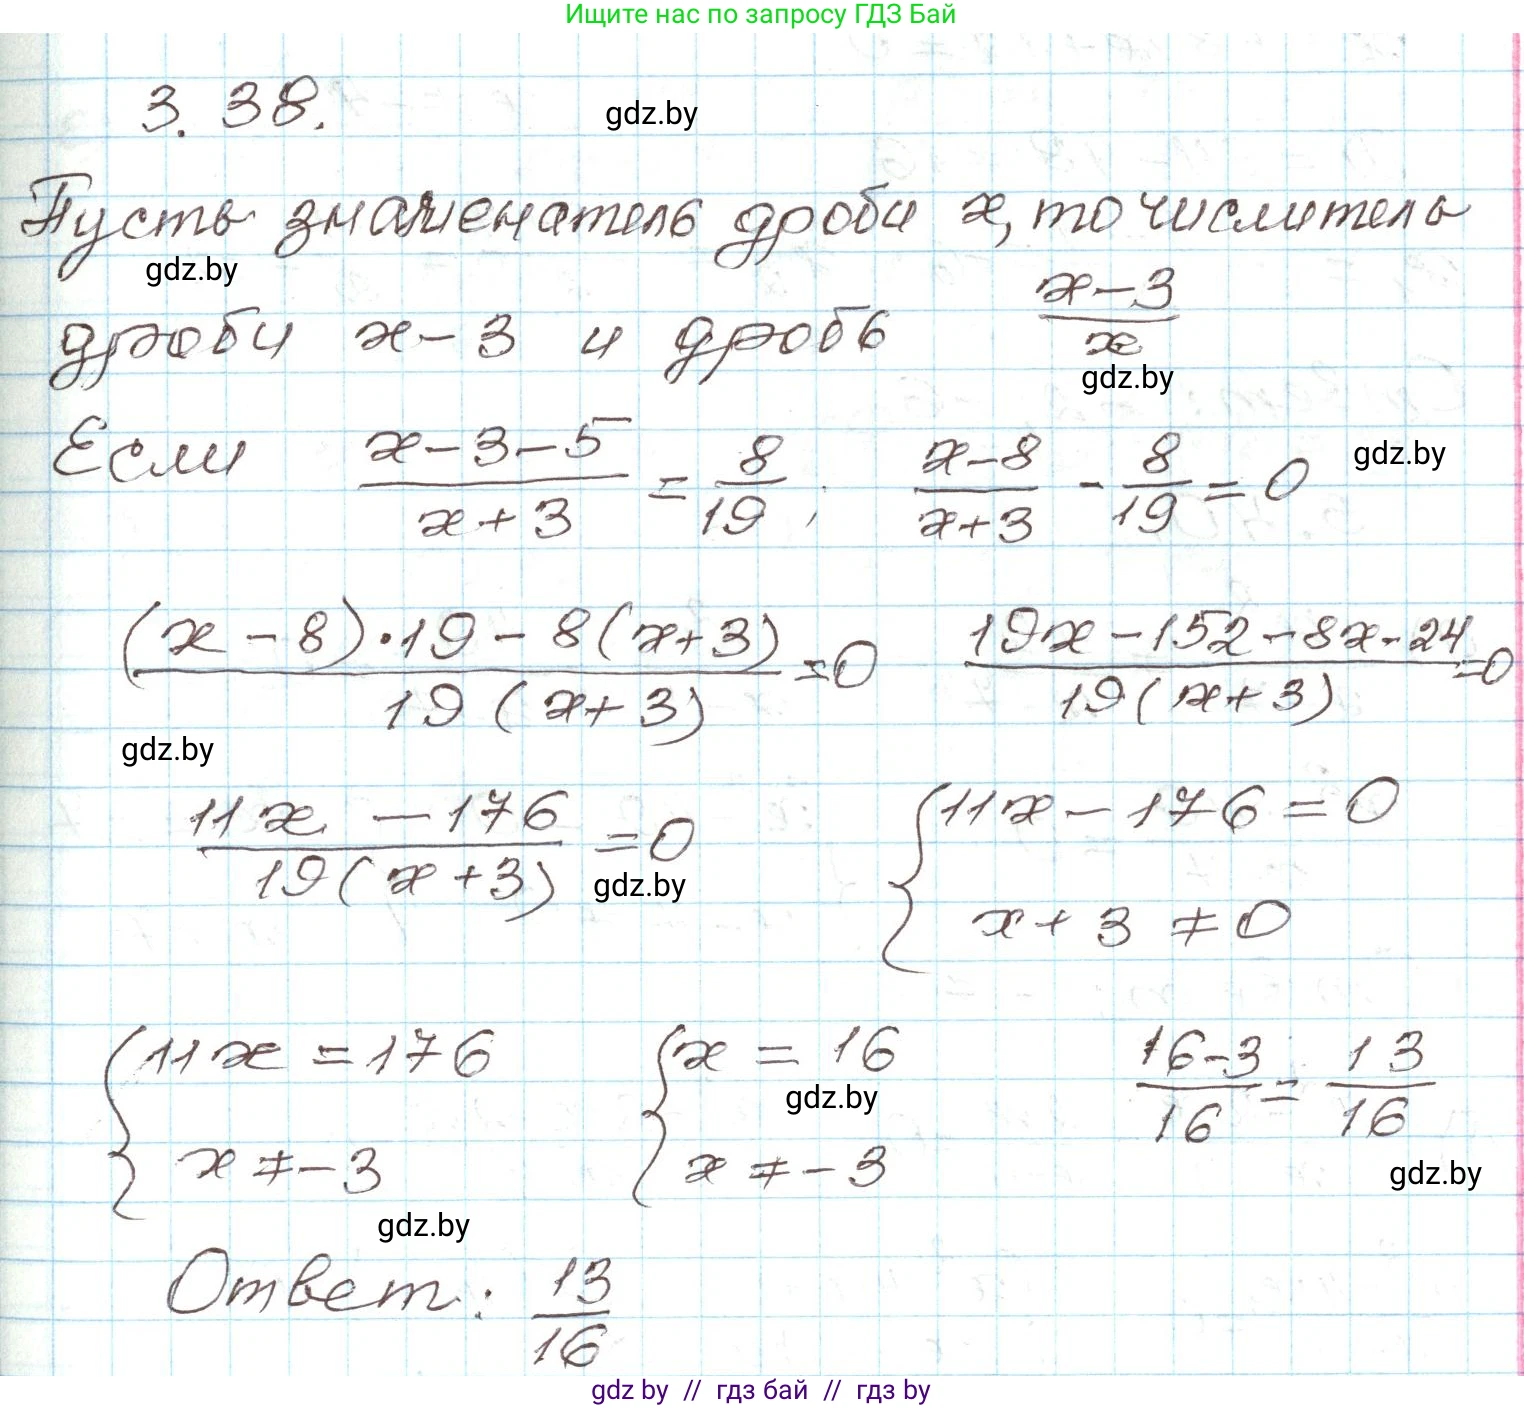 Ищите нас по запросу ГДЗ Бай
3.38.
gdz.by
Пусть знаменатель дроби x, то числитель
gdz.by
дроби x-3 и дробь (x-3)/x
gdz.by
Если (x-3-5)/(x+3) = 8/19; (x-8)/(x+3) - 8/19 = 0
gdz.by
((x-8)·19-8(x+3))/(19(x+3)) = 0 (19x-152-8x-24)/(19(x+3)) = 0
gdz.by
(11x-176)/(19(x+3)) = 0 { 11x-176=0
gdz.by
x+3≠0
{ 11x=176 { x=16 (16-3)/16 = 13/16
gdz.by
x≠-3 x≠-3
gdz.by
gdz.by
Ответ: 13/16
gdz by // гдз бай // гдз by